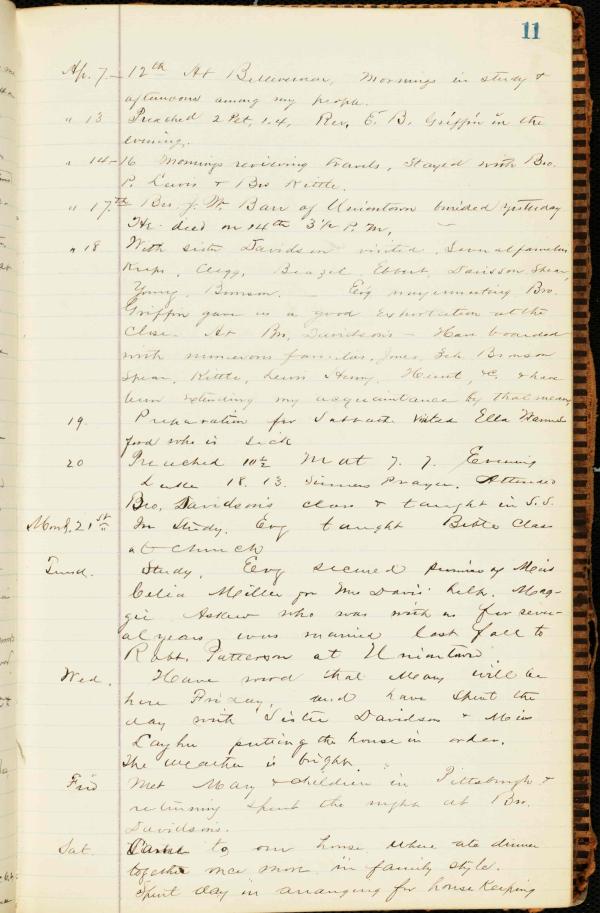 11
Ap. 7-12th At Bellevernon, Mornings in study &
afternoons among my people.
" 13 Preached 2 Pet, 1.4, Rev, E. B. Griffin in the
evening.
" 14-16 Mornings reviewing travels, Stayed with Bro.
P. Lewis & Bro Kittle.
" 17th Bro. J. W. Barr of Uniontown buried yesterday
He died on 14th 3½ P.M,
" 18 With sister Davidson visited, Several families
Kreps, Clegg, Beazel, Ebbert, Davisson Spear,
Young, Bronson. Evg prayermeeting Bro.
Griffin gave us a good Exhortation at the
Close. At Bro, Davidson's - Have boarded
with numerous families, Jones, Zeh Bronson
Spear, Kittle, Lewis Henry, Hunt, &c, & have
been extending my acquaintance by that means
19. Preparation for Sabbath. Visited Ella
ford who is sick
20 Preached 10½ M at 7. 7. Evening
Luke 18. 13. Sinners Prayer. Attended
Bro, Davidson's class & taught in S.S.
Mond. 21st " In Study. Evg taught Bible Class
at church
Tuesd. Study, Evg secured service of Miss
Celia Miller for Mrs Davis' help. Mag-
gie Askew who was with us for sever-
al years, was married last fall to
Robt. Patterson at Uniontown
Wed. Have word that Mary will be
here Friday, and have spent the
day with Sister Davidson & Miss
Layhu putting the house in order.
The weather is bright.
Frid Met Mary & children in Pittsburgh &
returning spent the night at Bro.
Davidsons.
Sat. Came to our house where ate dinner
together once more in family style.
Spent day in arranging for house keeping